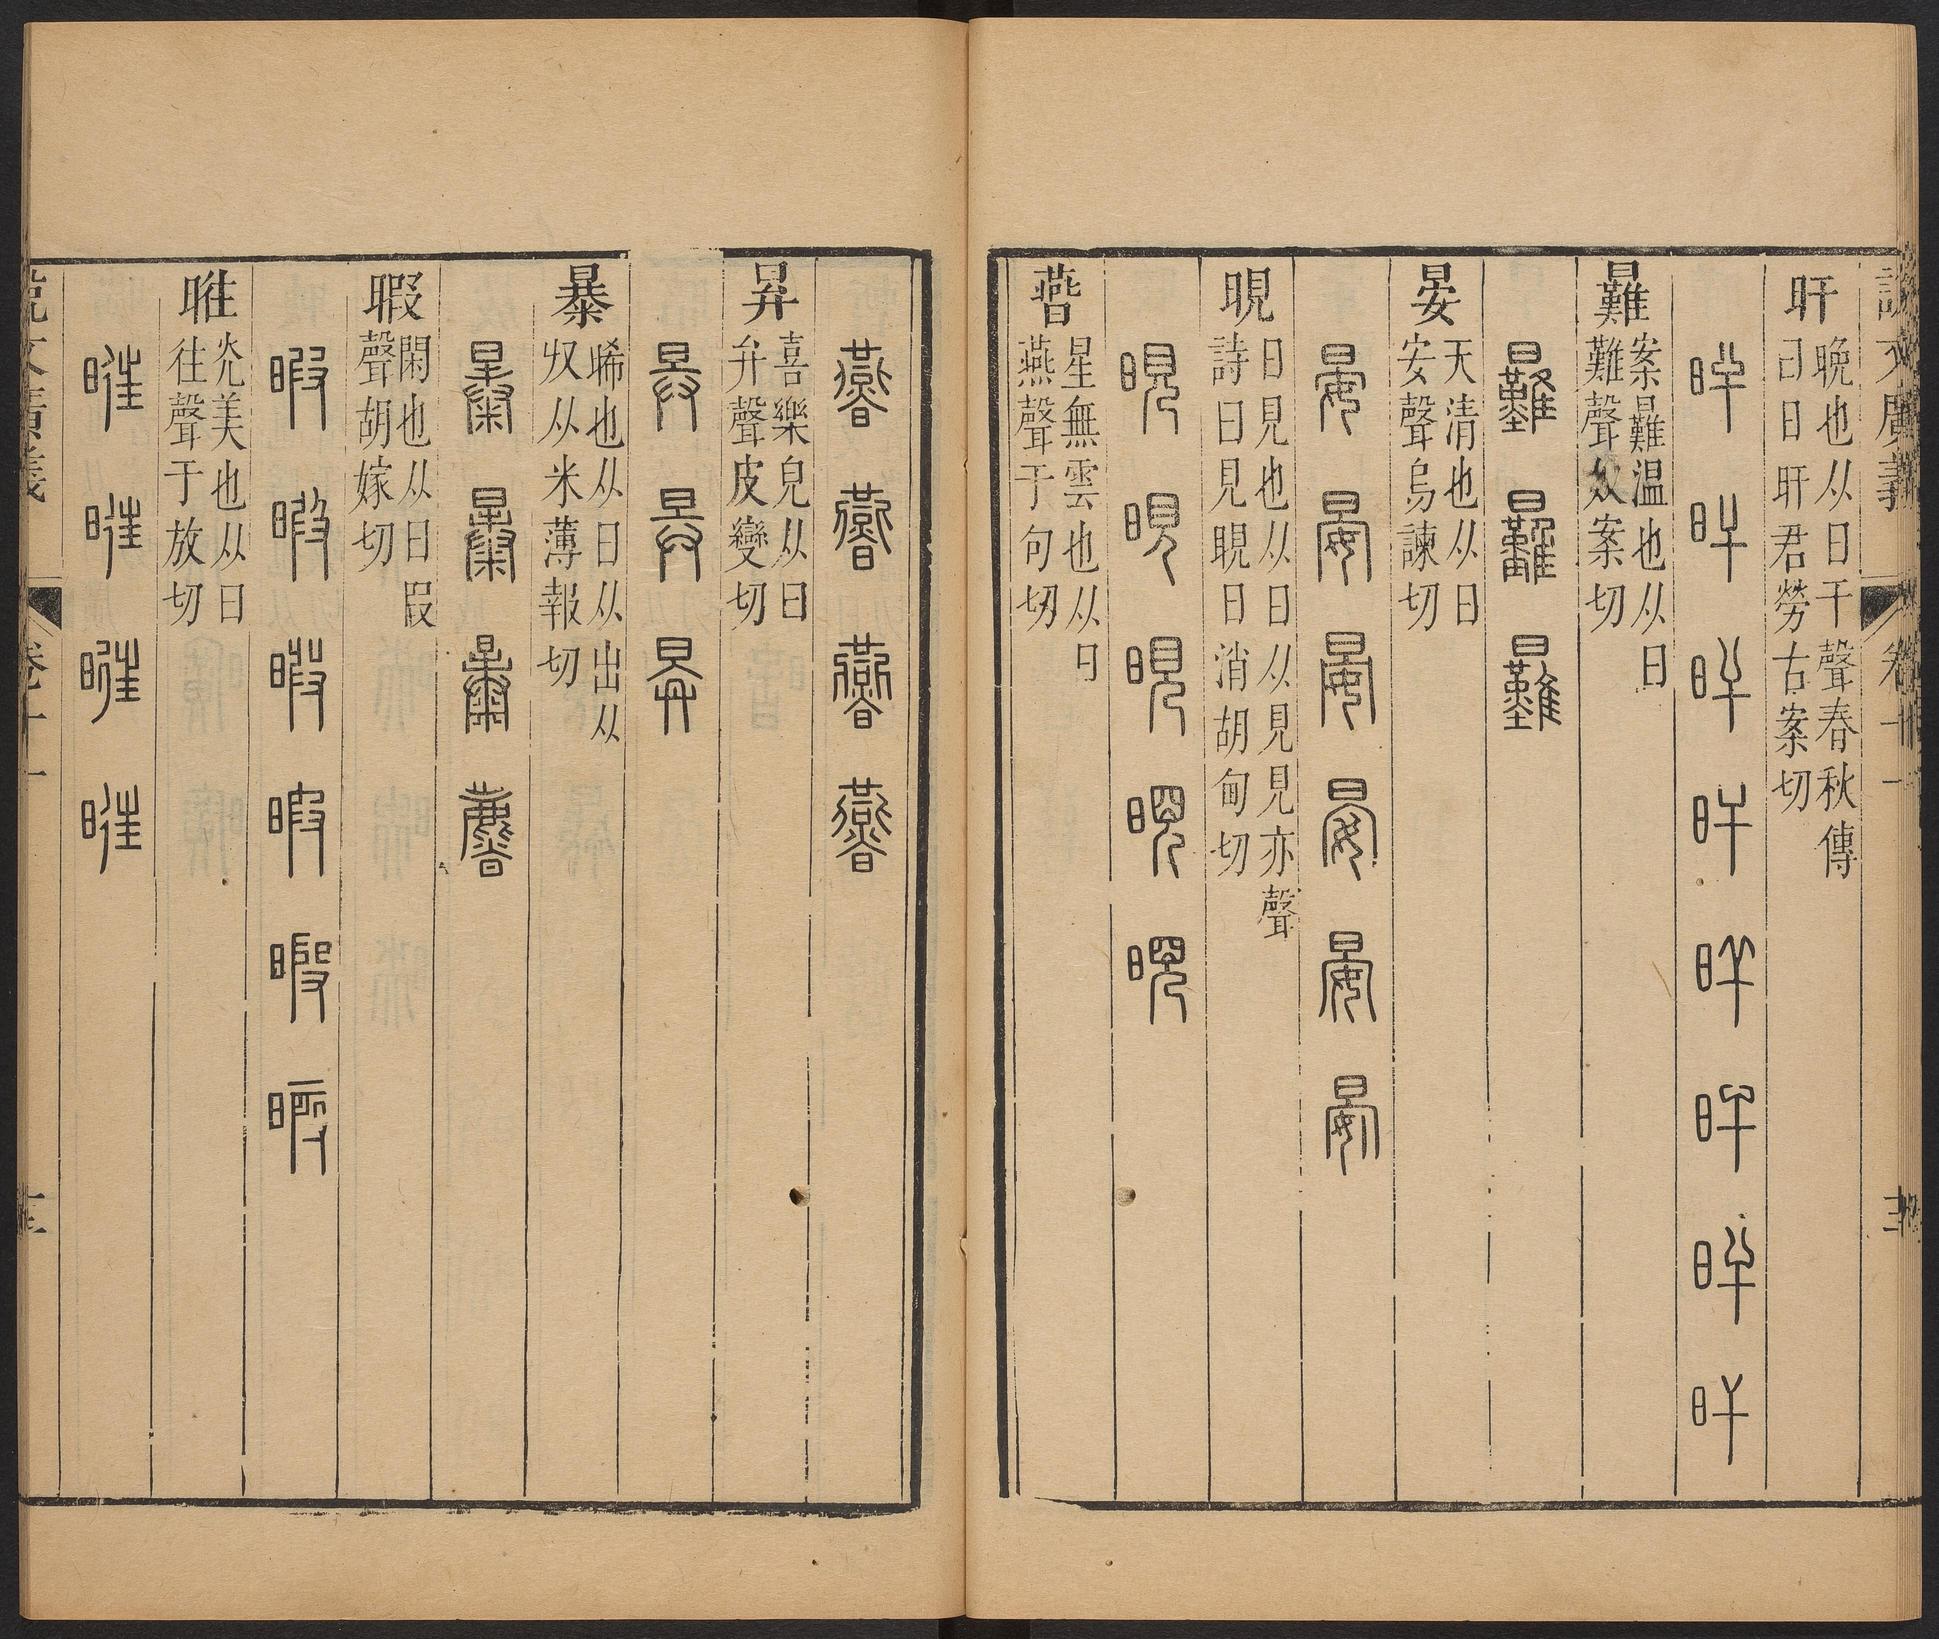 旰
晚也从日干聲春秋傳
曰日旰君勞古案切
旰旰旰旰旰旰旰旰
㬮
案㬮温也从日
難聲奴案切
㬮㬮㬮
晏
天清也从日
安聲烏諫切
晏晏晏晏晏晏
晛
日見也从日从見見亦聲
詩曰見晛日消胡甸切
晛晛晛晛晛
㬫
星無雲也从日
燕聲于句切
㬫㬫㬫㬫
昪
喜樂皃从日
弁聲皮變切
昪昪昪
暴
晞也从日从出从
𠬞从米薄報切
暴暴暴𣋴
暇
閑也从日叚
聲胡嫁切
暇暇暇暇暇暇
暀
炗美也从日
往聲于放切
暀暀暀暀